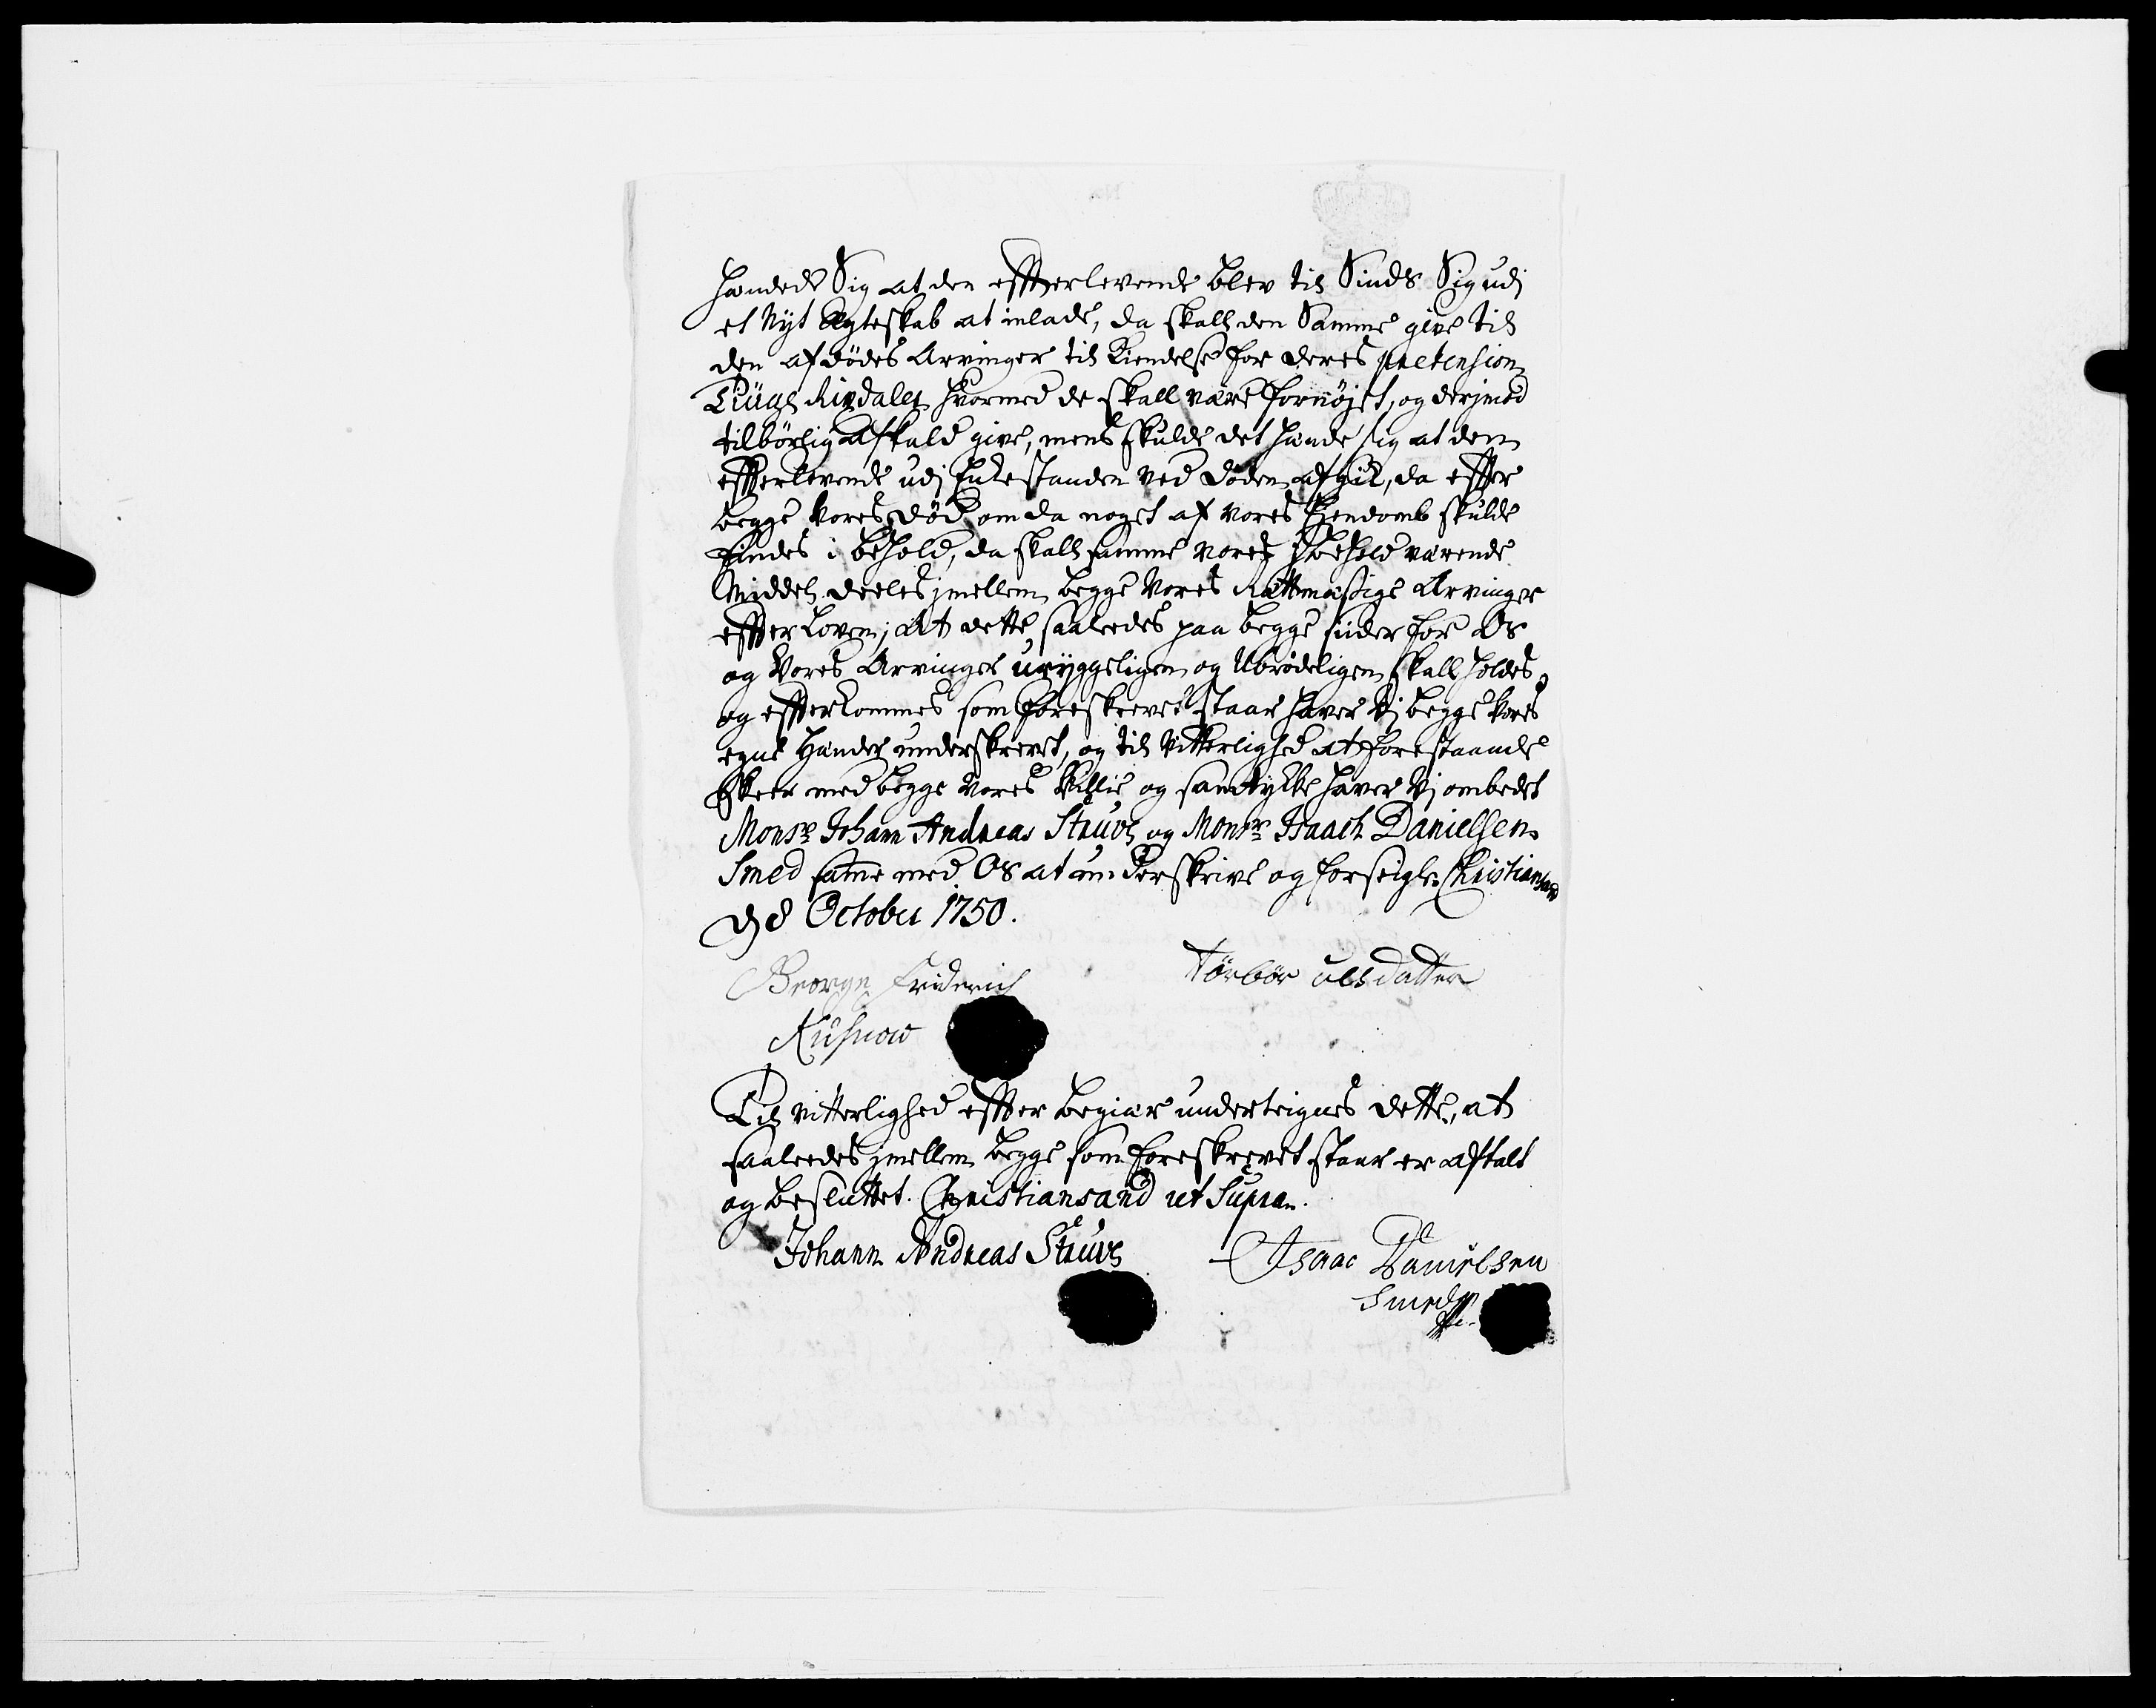 hændede Sig at den effterlevende blev til Sinds Sig udj
et Nyt Ægteskab at inlade, da skall den Samme give til
den afdödes Arvinger til Kiendelse for deres prætension
Tiüge Rixdaler hvormed de skall være fornöjet, og derjmod
tilbörlig Afkald give, mens skulde det hænde sig at den
effterlevende udj Enkestanden ved döden afgik, da effter
begge Vores död om da noget af vores Ejendomb skulde
findes i behold, da skall samme vores j behold værende
Middel deeles jmellem begge Vores Rættmæssige Arvinger
effter Loven; At dette saaleedes paa begge sider for Os
og Vores Arvinger uryggeligen og Ubrödeligen skall holdes
og effterkommes som foreskrevet staar haver Vj begge Vores
egne Hænder underskrevet, og til Vitterlighed at forestaaende
skeer med begge Vores Villie og samtykke haver Vj ombedet
Monsr Johann Andreas Struve og Monsr Isaach Danielsen
Smed samme med Os at underskrive og forseigle. Christiansand
d 8 October 1750.
George Friderich Törbör olsdatter
Küsnow
Til vitterlighed effter begiær undertegnes dette, at
saaleedes jmellem begge som foreskrevet staar er aftalt
og besluttet. Christiansand ut Supra.
Johann Andreas Struve Isaac Danielsen
Smed